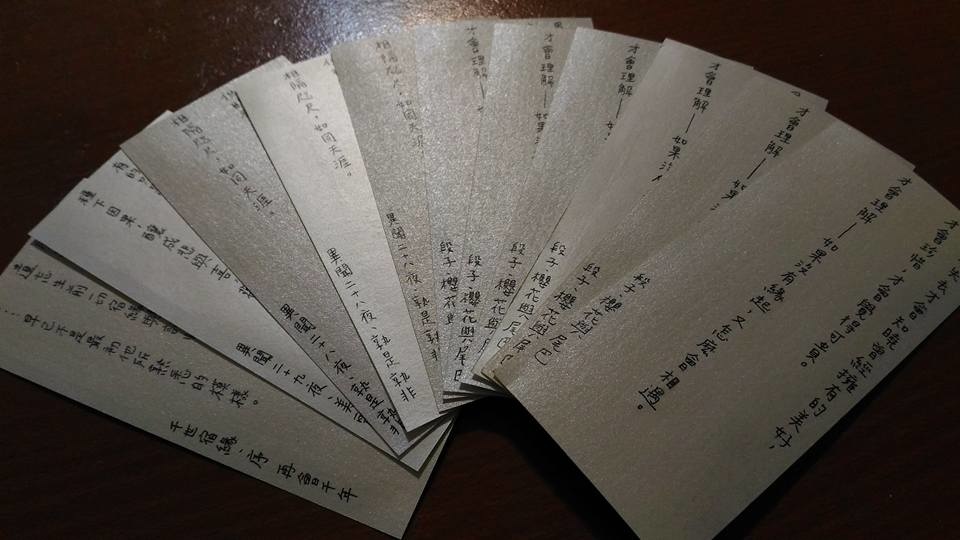 失去才會知曉曾經擁有的美好，
才會珍惜，才會覺得可貴。
才會理解——如果沒有緣起，又怎麼會相遇。
才會理解——如
段子、櫻花與尾巴
才會理解——如果沒
段子、櫻花與尾巴
才會理解——
段子、櫻花與尾巴
才會理解——如果
段子、櫻花與尾巴
才會理解
段子、櫻花與
相隔咫尺，如同天涯
異聞二十八夜、孰是孰非
相隔咫尺，如同天涯。
異聞二十八夜、孰是孰非
相隔咫尺，如同天涯。
異聞二十八夜、孰是孰非
種下因果，釀成悲與喜
異聞二十九夜、
早已不是最初他所熟悉的模樣。
千世宿緣、序 再會千年